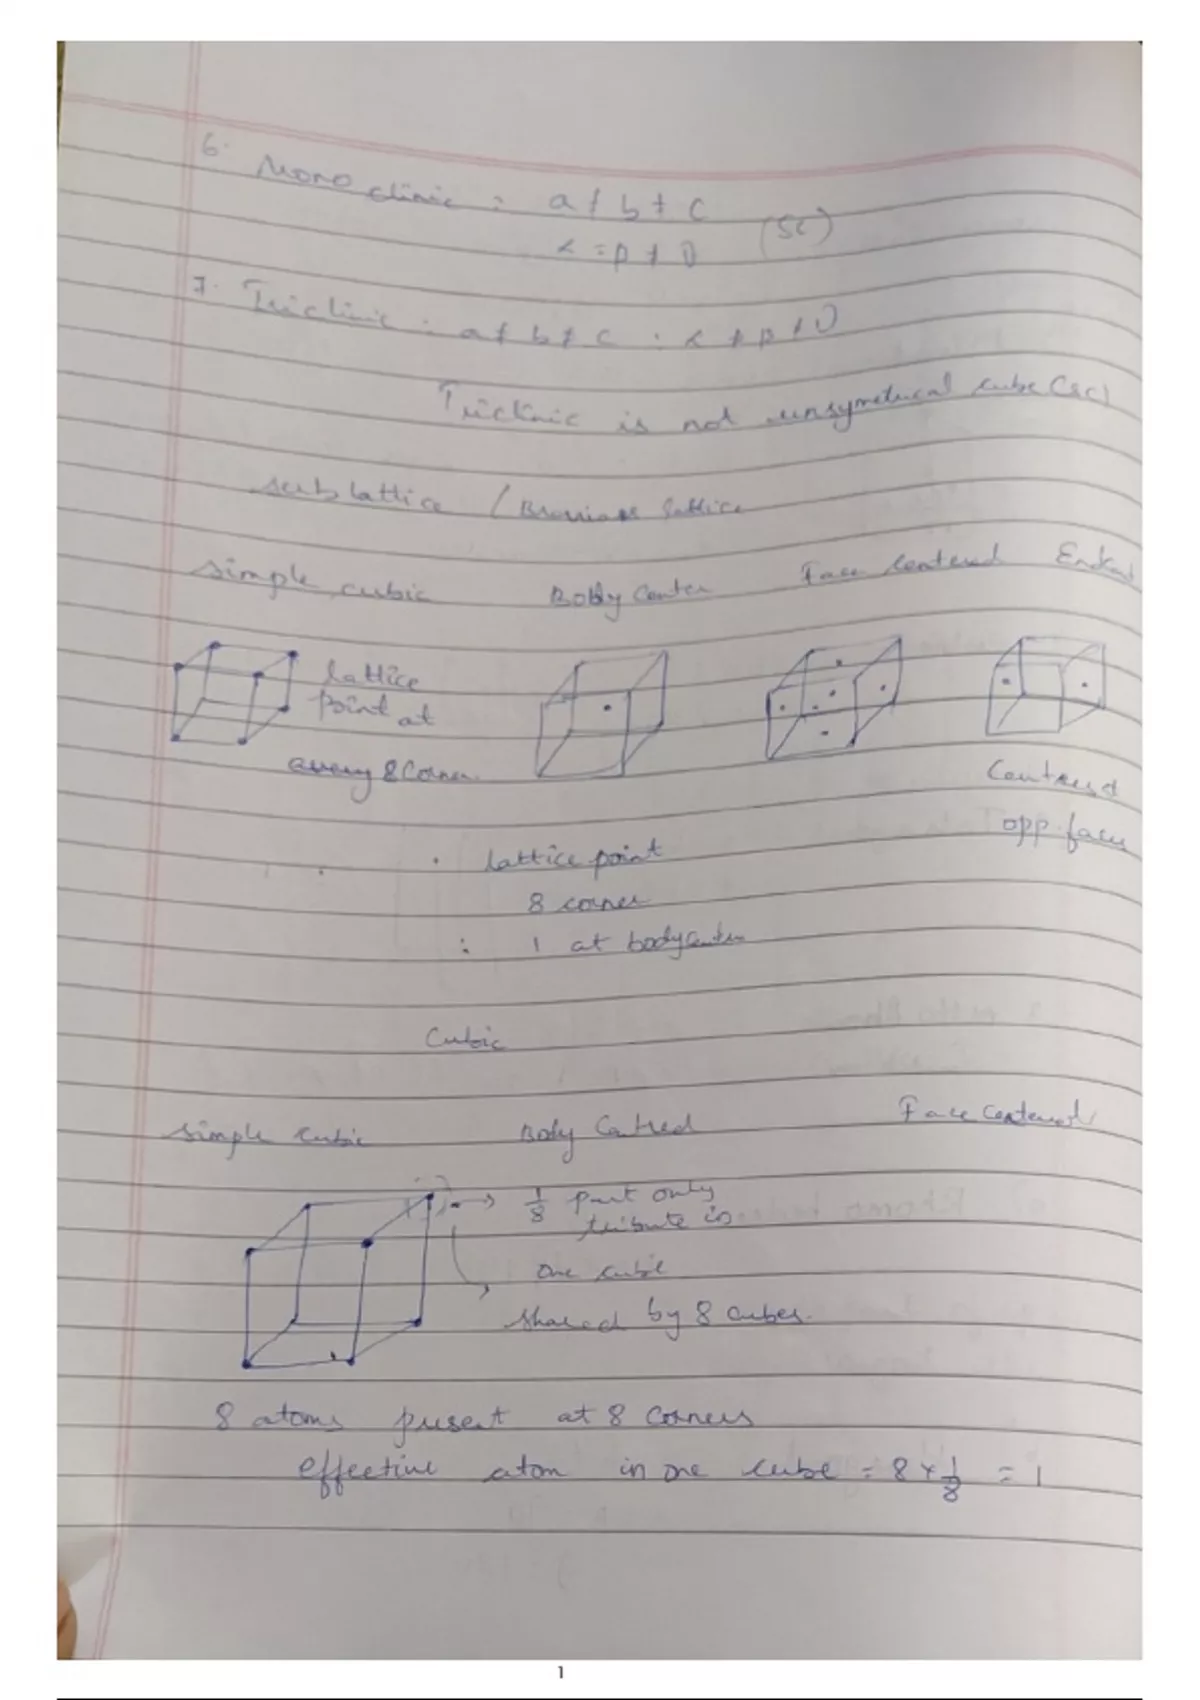 6. Monoclinic : a ≠ b ≠ c
α = β ≠ γ (SC)
7. Triclinic : a ≠ b ≠ c : α ≠ β ≠ γ
Triclinic is not unsymetrical cube (SC)
sublattice / lattice
simple cubic Body Center Face Centered
lattice
point at
every 8 Corner
Centred
opp. faces
. lattice point
8 corner
: 1 at bodycenter
Cubic
simple cubic Body Centred Face Centered
→ 1/8 part only
tribute in
one cube
shared by 8 cubes.
8 atoms present at 8 Corners
effective atom in one cube = 8 × 1/8 = 1
1